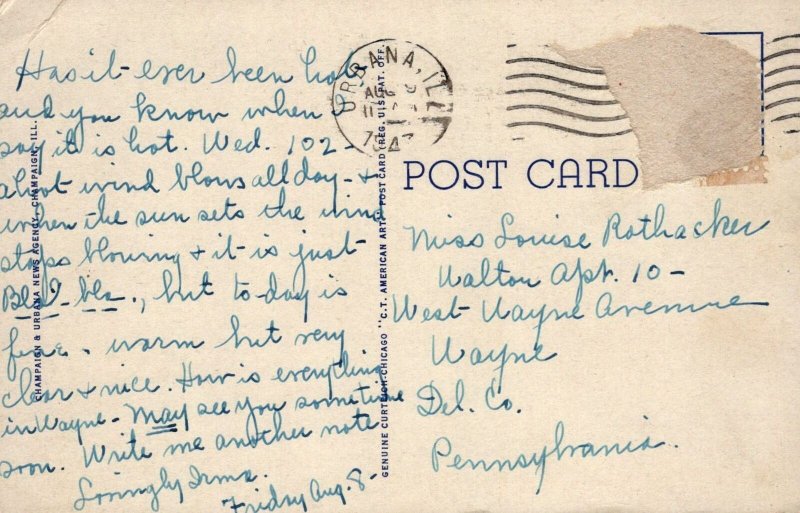 Has it ever been hot
and you know when I
say it is hot. Wed. 102 -
a hot wind blows all day - &
when the sun sets the wind
stops blowing & it is just
Bla - bla., but to-day is
fine. warm but very
clear & nice. How is everything
in Wayne - May see you sometime
soon. Write me another note
Lovingly Irma.
Friday Aug. 8 -
CHAMPAIGN & URBANA NEWS AGENCY, CHAMPAIGN, ILL.
GENUINE CURTEICH-CHICAGO "C.T. AMERICAN ART" POST CARD (REG. U.S. PAT. OFF.)
URBANA, ILL.
AUG
11
1947
POST CARD
Miss Louise Rothacker
Walton Apt. 10 -
West Wayne Avenue
Wayne
Del. Co.
Pennsylvania.